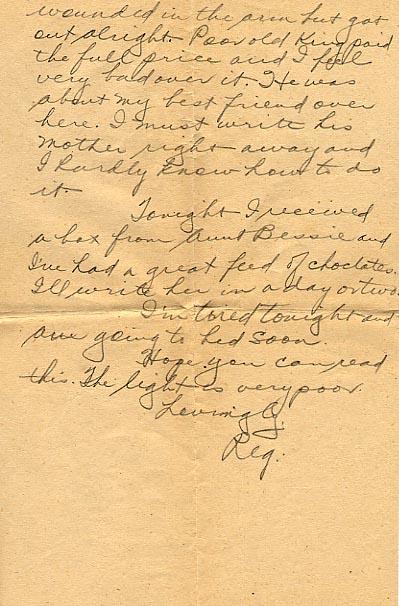 wounded in the arm but got
out alright. Poor old King paid
the full price and I feel
very bad over it. He was
about my best friend over
here. I must write his
mother right away and
I hardly know how to do
it.
Tonight I received
a box from Aunt Bessie and
I've had a great feed of choclates.
I'll write her in a day or two.
I'm tired tonight and
am going to bed soon.
Hope you can read
this. The light is very poor.
Lovingly,
Reg.